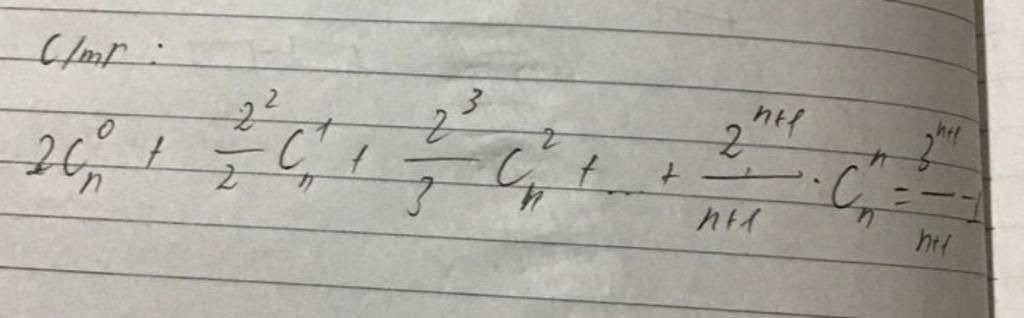 C/mr :
2C_n^0 + \frac{2^2}{2} C_n^1 + \frac{2^3}{3} C_n^2 + ... + \frac{2^{n+1}}{n+1} . C_n^n = \frac{3^{n+1}}{n+1} -1